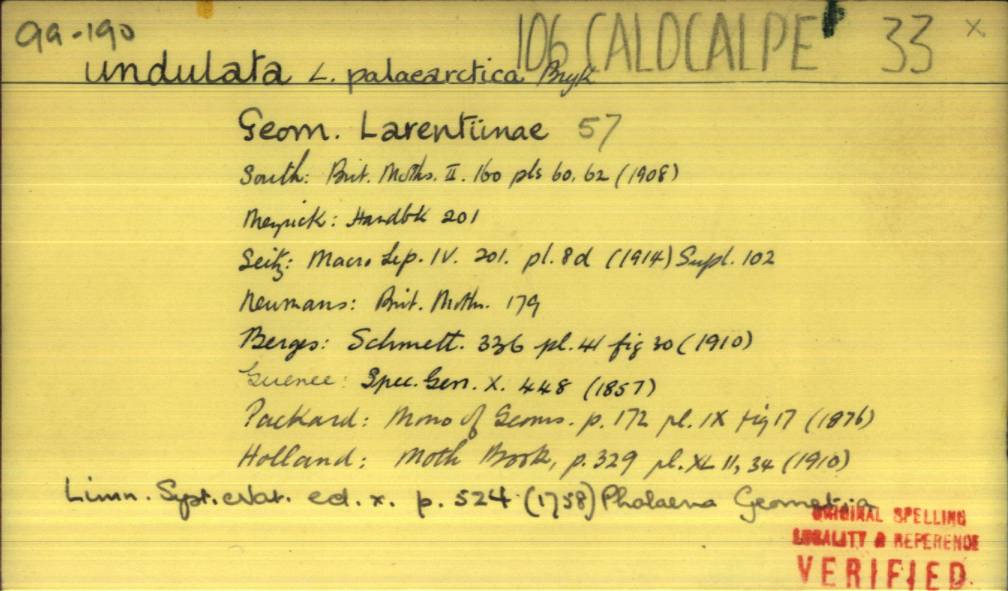 99-190 106 CALOCALPE 33 x
undulata L. palaearctica Bryk
Geom. Larentiinae 57
South: Brit. Moths. II. 160 pls 60, 62 (1908)
Meyrick: Handbk 201
Seitz: Macro Lep. IV. 201. pl. 8d (1914) Supl. 102
Neumans: Brit. Moths. 179
Berges: Schmett. 336 pl. 41 fig 30 (1910)
Guenee: Spec. Gen. X. 448 (1857)
Packard: Mono of Geoms. p. 172 pl. IX fig 17 (1876)
Holland: Moth Book, p. 329 pl. XLII, 34 (1910)
Linn. Syst. Nat. ed. x. p. 524 (1758) Phalaena Geometra
ORIGINAL SPELLING
LOCALITY & REFERENCE
VERIFIED.